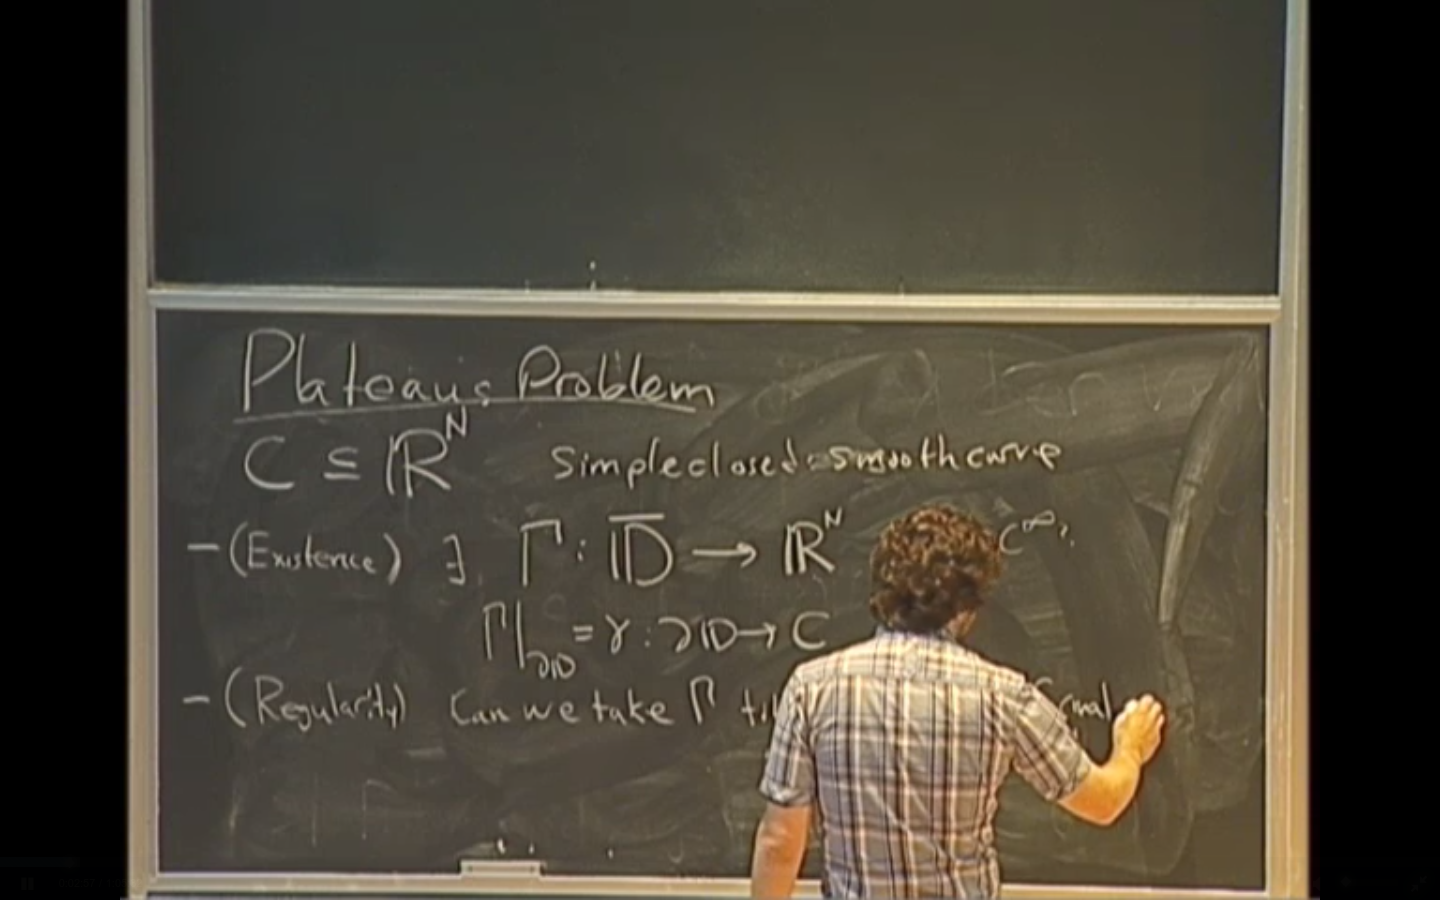 Plateau's Problem
C ⊆ ℝ^N simple closed smooth curve
- (Existence) ∃ Γ : 𝔻̅ → ℝ^N C^∞?
Γ|_∂𝔻 = γ : ∂𝔻 → C
- (Regularity) Can we take Γ